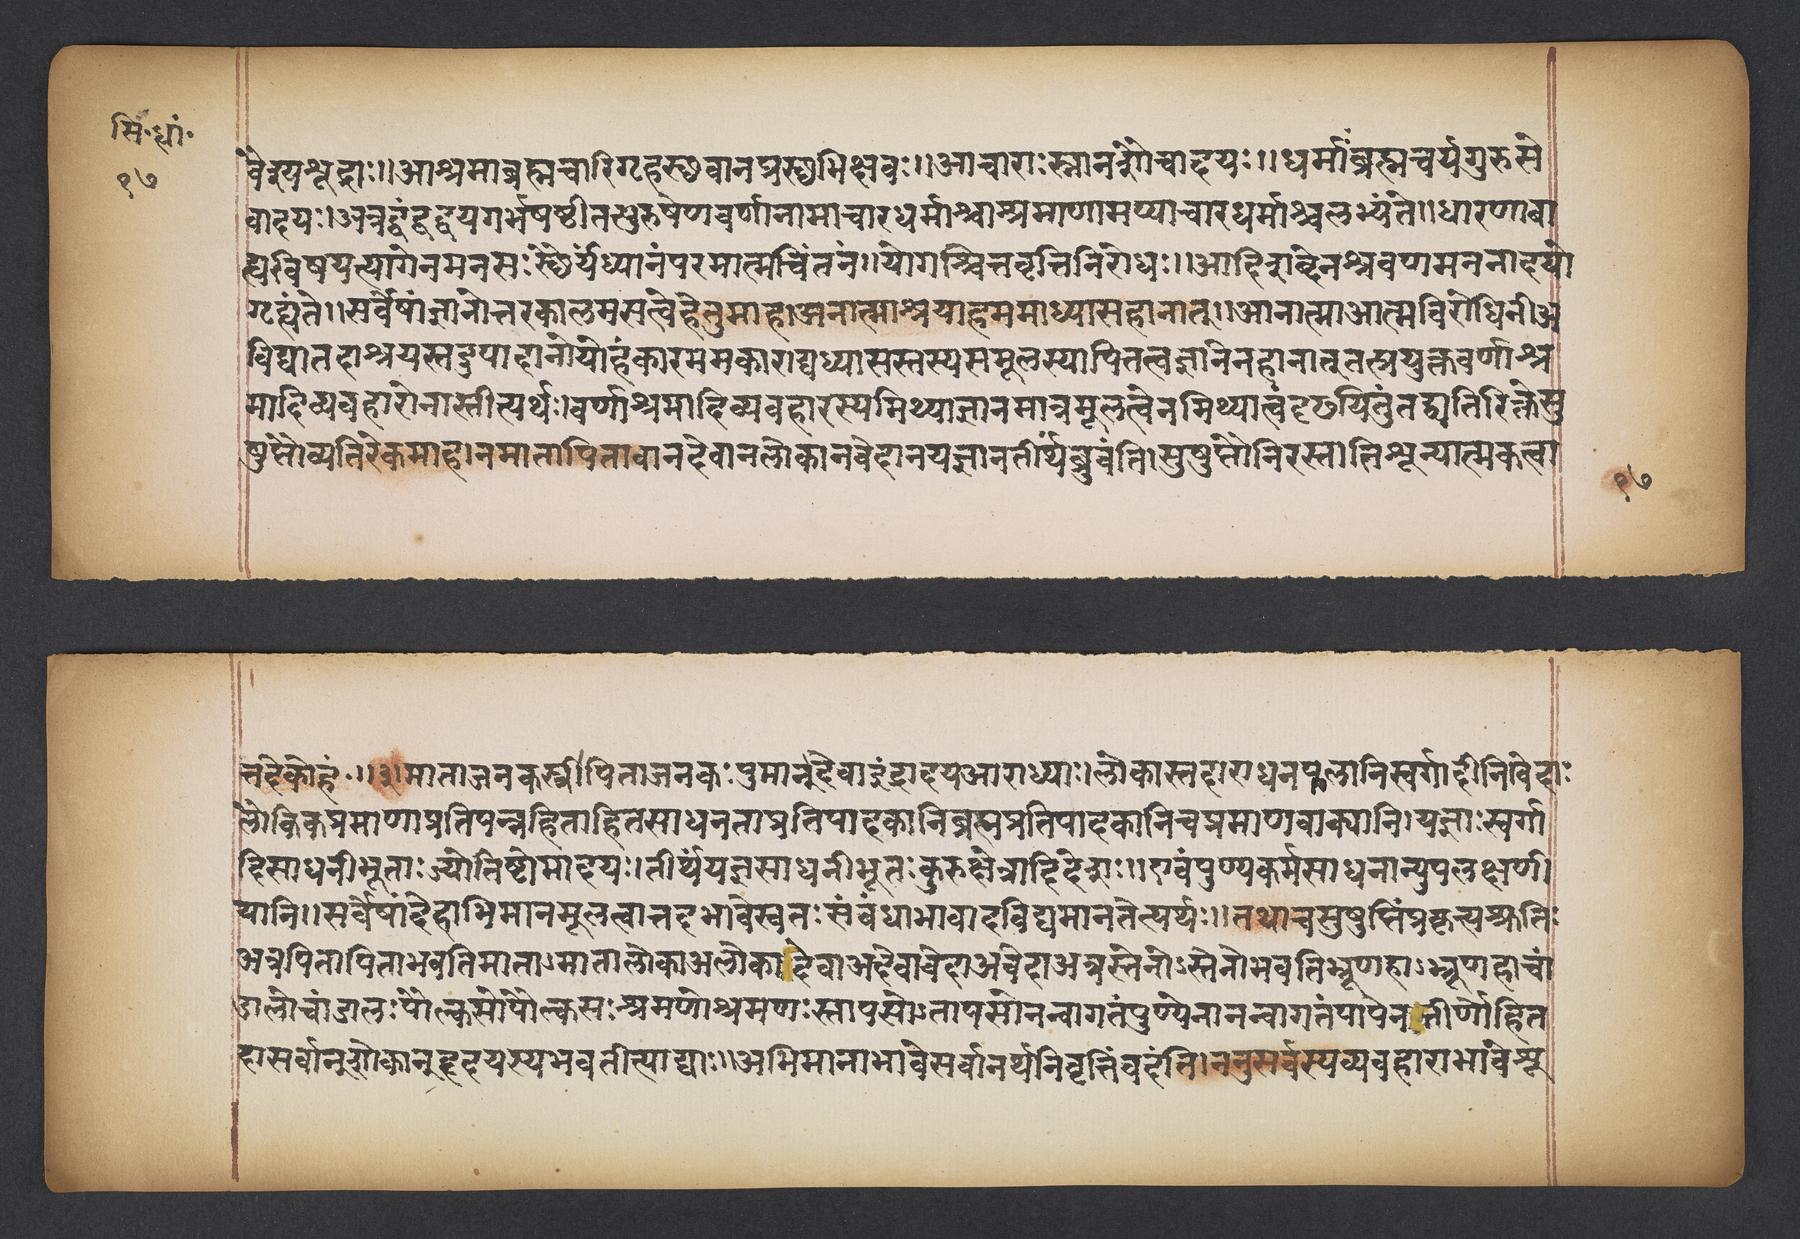 सि॰ धां॰
१७
वैश्यशूद्राः॥आश्रमाब्रह्मचारिगृहस्थवानप्रस्थभिक्षवः॥आचाराःस्नानशौचादयः॥धर्माब्रह्मचर्यगुरुसे
वादयः।अत्रद्वंद्वद्वयगर्भषष्ठीतत्पुरुषेणवर्णानामाचारधर्माश्चाश्रमाणामप्याचारधर्माश्चलभ्यंते॥धारणाबा
ह्यविषयत्यागेनमनसःस्थैर्यंध्यानंपरमात्मचिंतनं॥योगश्चित्तवृत्तिनिरोधः॥आदिशब्देनश्रवणमननादयो
गृह्यंते॥सर्वेषांज्ञानोत्तरकालमसत्वेहेतुमाह।अनात्माश्रयाहंममाध्यासहानात्॥आनात्माआत्मविरोधिनीअ
विद्यातदाश्रयस्तदुपादानोयोहंकारममकाराद्यध्यासस्तस्यसमूलस्यापितत्वज्ञानेनहानात्तत्प्रयुक्तवर्णाश्र
मादिव्यवहारोनास्तीत्यर्थः।वर्णाश्रमादिव्यवहारस्यमिथ्याज्ञानमात्रमूलत्वेनमिथ्यात्वंदृढयितुंतद्व्यतिरिक्तेसु
षुप्तौव्यतिरेकमाह।नमातापितावानदेवानलोकानवेदानयज्ञानतीर्थंब्रुवंति।सुषुप्तौनिरस्तातिशून्यात्मकत्वा
१७
त्तदेकोहं॰॥३॥माताजनकस्त्रीपिताजनकःपुमान्देवाइंद्रादयआराध्याः।लोकास्तदाराधनफलानिस्वर्गादीनिवेदाः
लौकिकप्रमाणाप्रतिपन्नहिताहितसाधनताप्रतिपादकानिब्रह्मप्रतिपादकानिचप्रमाणवाक्यानि।यज्ञाःस्वर्गा
दिसाधनीभूताःज्योतिष्टोमादयः।तीर्थंयज्ञसाधनीभूतःकुरुक्षेत्रादिदेशः॥एवंपुण्यकर्मसाधनान्युपलक्षणी
यानि॥सर्वेषांदेहाभिमानमूलत्वात्तदभावेस्वतःसंबंधाभावादविद्यमानतेत्यर्थः॥तथाचसुषुप्तिंप्रकृत्यश्रुतिः
अत्रपितापिताभवतिमाताऽमातालोकाअलोकादेवाअदेवावेदाअवेदाअत्रस्तेनोऽस्तेनोभवतिभ्रूणहाऽभ्रूणहाचां
डालोचांडालःपौल्कसोपौल्कसःश्रमणोश्रमणःस्तापसोऽतापसोनन्वागतंपुण्येनानन्वागतंपापेनतीर्णोहित
दासर्वान्शोकान्हृदयस्यभवतीत्याद्याः॥अभिमानाभावेसर्वानर्थनिवृत्तिंवदंति।ननुसर्वस्यव्यवहाराभावेशू